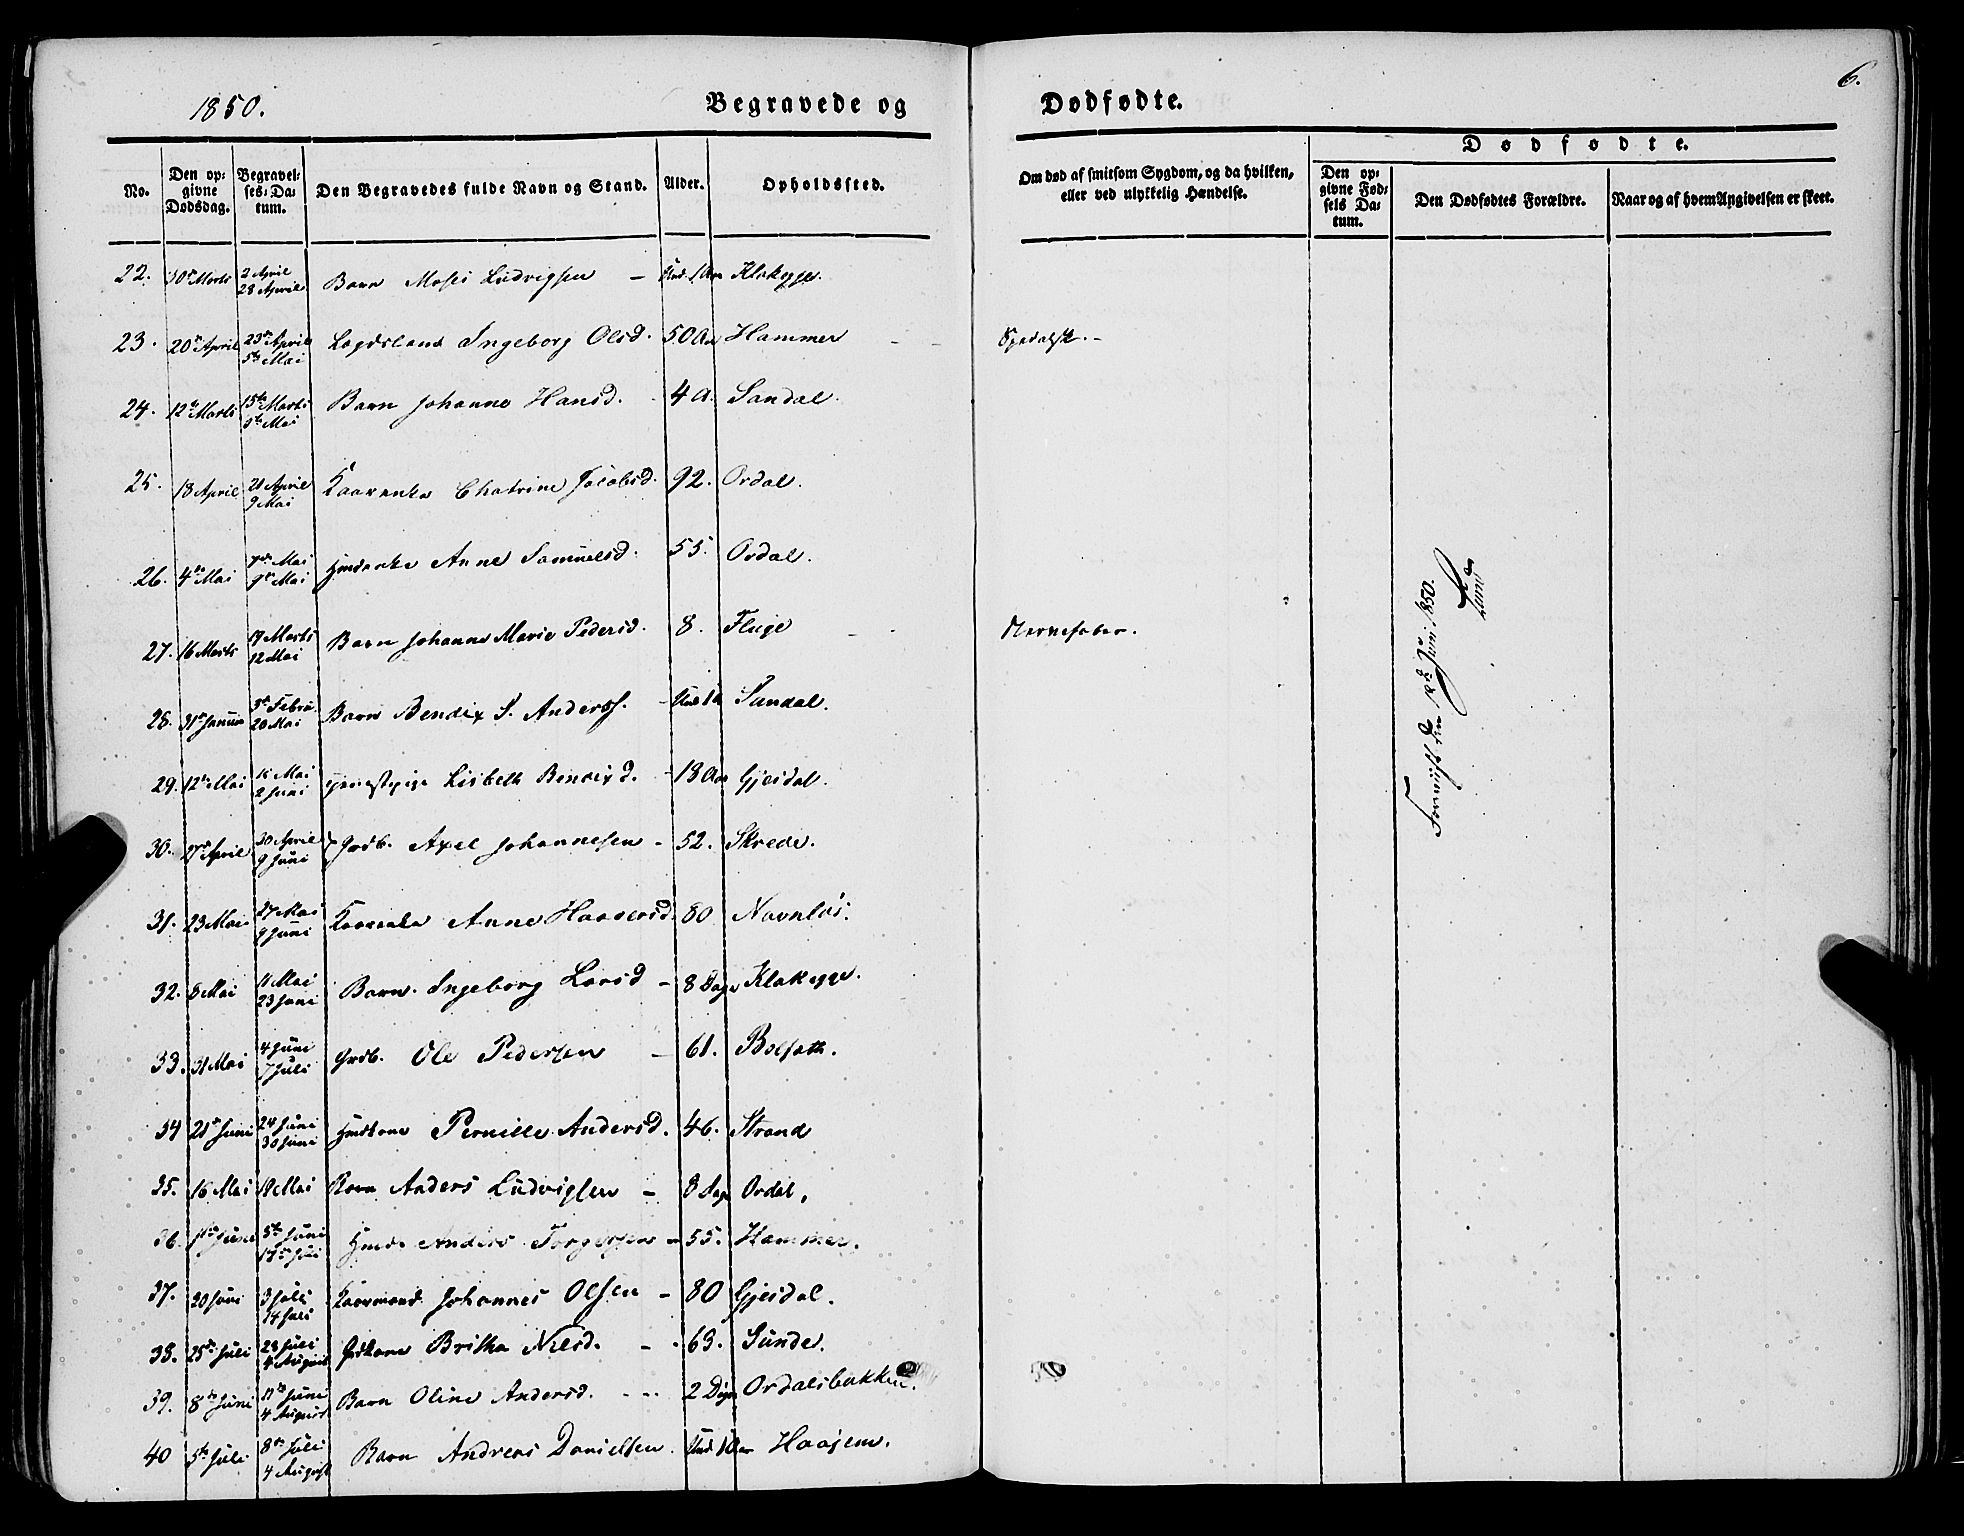 1850.
Begravede og Dodfodte.
6.
No.
Den opgivne Dodsdag.
Begravelses-Datum.
Den Begravedes fulde Navn og Stand.
Alder.
Opholdssted.
Om død af smitsom Sygdom, og da hvilken, eller ved ulykkelig Hændelse.
Dodfodte.
Den opgivne Fødsels Datum.
Den Dodfødtes Forældre.
Naar og af hvem Angivelsen er skeet.
22. 30te Marts 2 April 28 April Barn Moses Ludvigsen – Und. 1 Aar Klakegge.
23. 20de April 23de April 5te Mai Lægdslem Ingeborg Olsd. 50 Aar Hammer Spedalsk. –
24. 12te Marts 15te Marts 5te Mai Barn Johanne Hansd. 4 A. Sandal.
25. 18 April 21 April 9 Mai Kaarenke Chatrine Jacobsd. 92. Ordal.
26. 4de Mai 7de Mai 9de Mai Anne Samuelsd. 55. Ordal.
27. 16 Marts 19 Marts 12 Mai Barn Johanne Marie Pedersd. 8. Fluge Nervefeber.
28. 31te Januar 3de Febru. 20 Mai Barn Bendix S. Anderss. – Und 1 A Sandal.
29. 12te Mai 15 Mai 2 Juni Lisbeth Bendixd. – 18 Aar Gjesdal.
30. 27de April 30 April 9 Juni Grdb. Axel Johannesen – 52. Skrede.
31. 23 Mai 27 Mai 9 Juni Kaarenke Anne Haagensd. 80 Navnløs.
32. 8 Mai 11 Mai 23 Juni Barn Ingeborg Larsd – 8 Dage Klakegge.
33. 31 Mai 4 Juni 7 Juli Grdb. Ole Pedersen – 61. Bolsæth.
34 21de Juni 24 Juni 30 Juni Huuskone Pernille Andersd. 46. Strand
35. 16 Mai 19 Mai Barn Anders Ludvigsen – 8 Dage Ordal.
36. 1ste Juni 5te Juni Anders Torgersen – 55. Hammer.
37. 20 Juni 3 Juli 14 Juli Kaarmand Johannes Olsen – 80 Gjesdal.
38. 25de Juli 28 Juli 4 August Grdkone Britha Nilsd. – 63. Sunde.
39. 8de Juni 11te Juni 4 August Barn Oline Andersd. 2 Dage Ordalsbakken.
40 5te Juli 8de Juli 4 August Barn Andreas Danielsen. Und 1 Aar Haajem.
Foreviist den 18de Juni 1850.
Lund